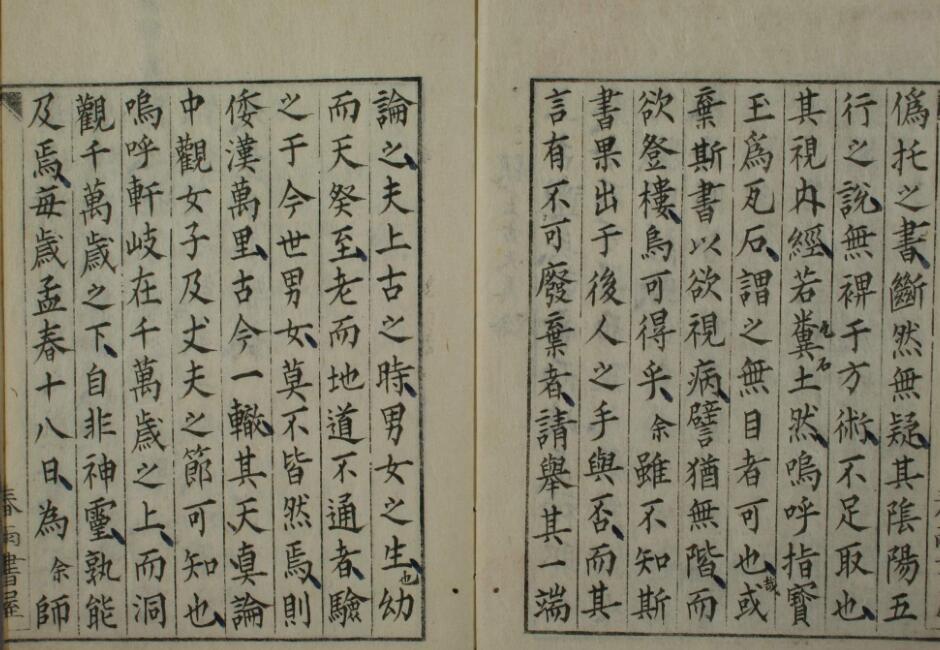 僞托之書、斷然無疑、其陰陽五
行之說、無裨于方術、不足取也、
其視內經、若糞土然、嗚呼指寶
玉爲瓦石、謂之無目者可也、或
棄斯書以欲視病、譬猶無階、而
欲登樓、烏可得乎、余雖不知斯
書果出于後人之手與否、而其
言有不可廢棄者、請舉其一端
論之、夫上古之時、男女之生、幼
而天癸至、老而地道不通者、驗
之于今世男女、莫不皆然焉、則
倭漢萬里、古今一轍、其天眞論
中觀女子及丈夫之節可知也、
嗚呼軒岐在千萬歲之上、而洞
觀千萬歲之下、自非神靈、孰能
及焉、每歲孟春十八日、為余師
春雨書屋